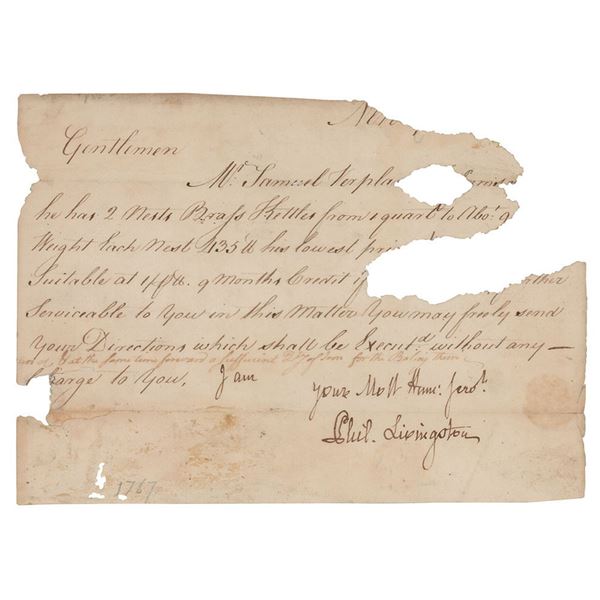 New
Gentlemen
Mr. Samuel Verpla
he has 2 Nests Brass Kettles from 1 quart. to Abo. 9
Weight Each Nest 135 lb has lowest pri
Suitable at 9 Months Credit if
Serviceable to You in this Matter You may freely send
Your Directions which shall be Execut.d without any —
& at the same time forward a sufficient of Iron for the Balas. them
Charge to You. I am
Your Most Hum. Serv.t
Phil. Livingston
1767